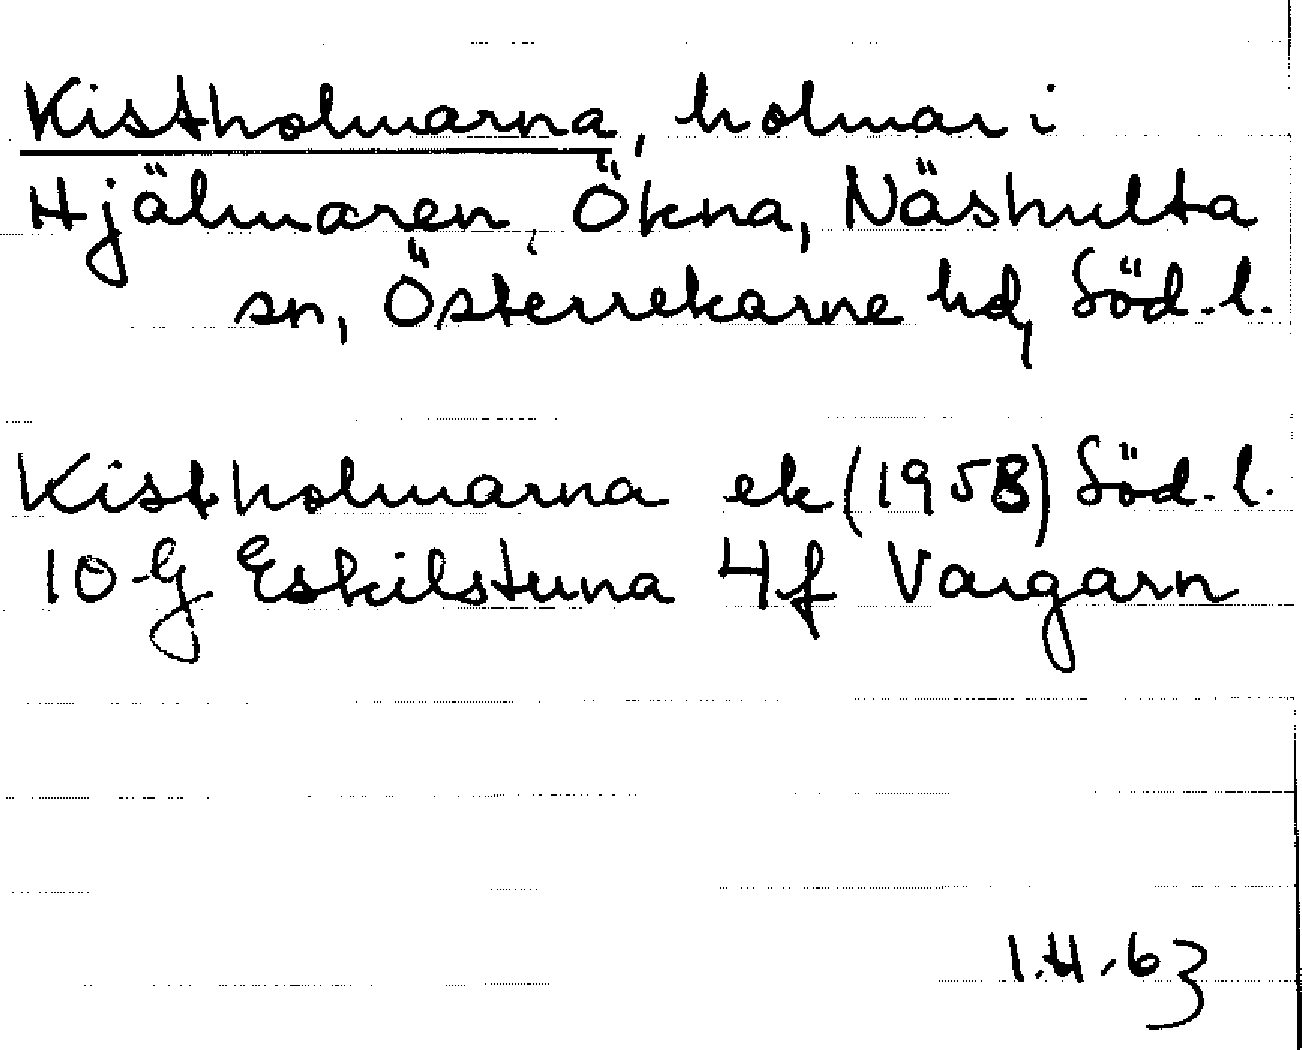 Kistholmarna, holmar i
Hjälmaren, Ökna, Näshulta
sn, Österrekarne hd, Söd. l.
Kistholmarna ek (1958) Söd. l.
10 G Eskilstuna 4 f Vargarn
I.H.63